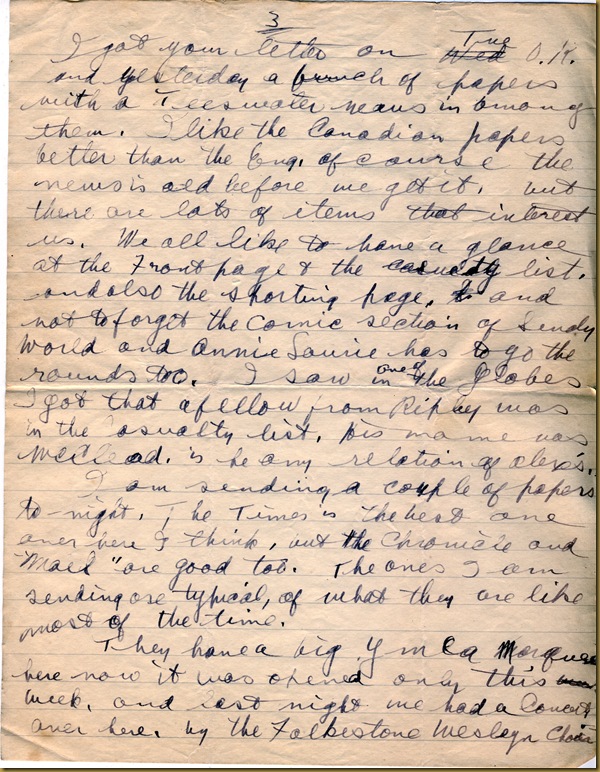 3
I got your letter on Wed Tue O.K.
and yesterday a bunch of papers
with a Teeswater news in among
them. I like the Canadian papers
better than the Eng. of course the
news is old before we get it. but
there are lots of items that interest
us. We all like to have a glance
at the Front page & the casualty list.
and also the sporting page, and
not to forget the Comic section of Sendy
World and Annie Laurie has to go the
rounds too. I saw in one of the Globes
I got that a fellow from Ripley was
in the Casualty list. his name was
McCleod. is he any relation of Alex's.
I am sending a couple of papers
to-night. The Times is the best one
over here I think, but the Chronicle and
"Mail" are good too. The ones I am
sending are typical, of what they are like
most of the time.
They have a big Y m C a Marquee
here now it was opened only this
week, and last night we had a Concert
over here, by the Folkestone Wesleyn Choir